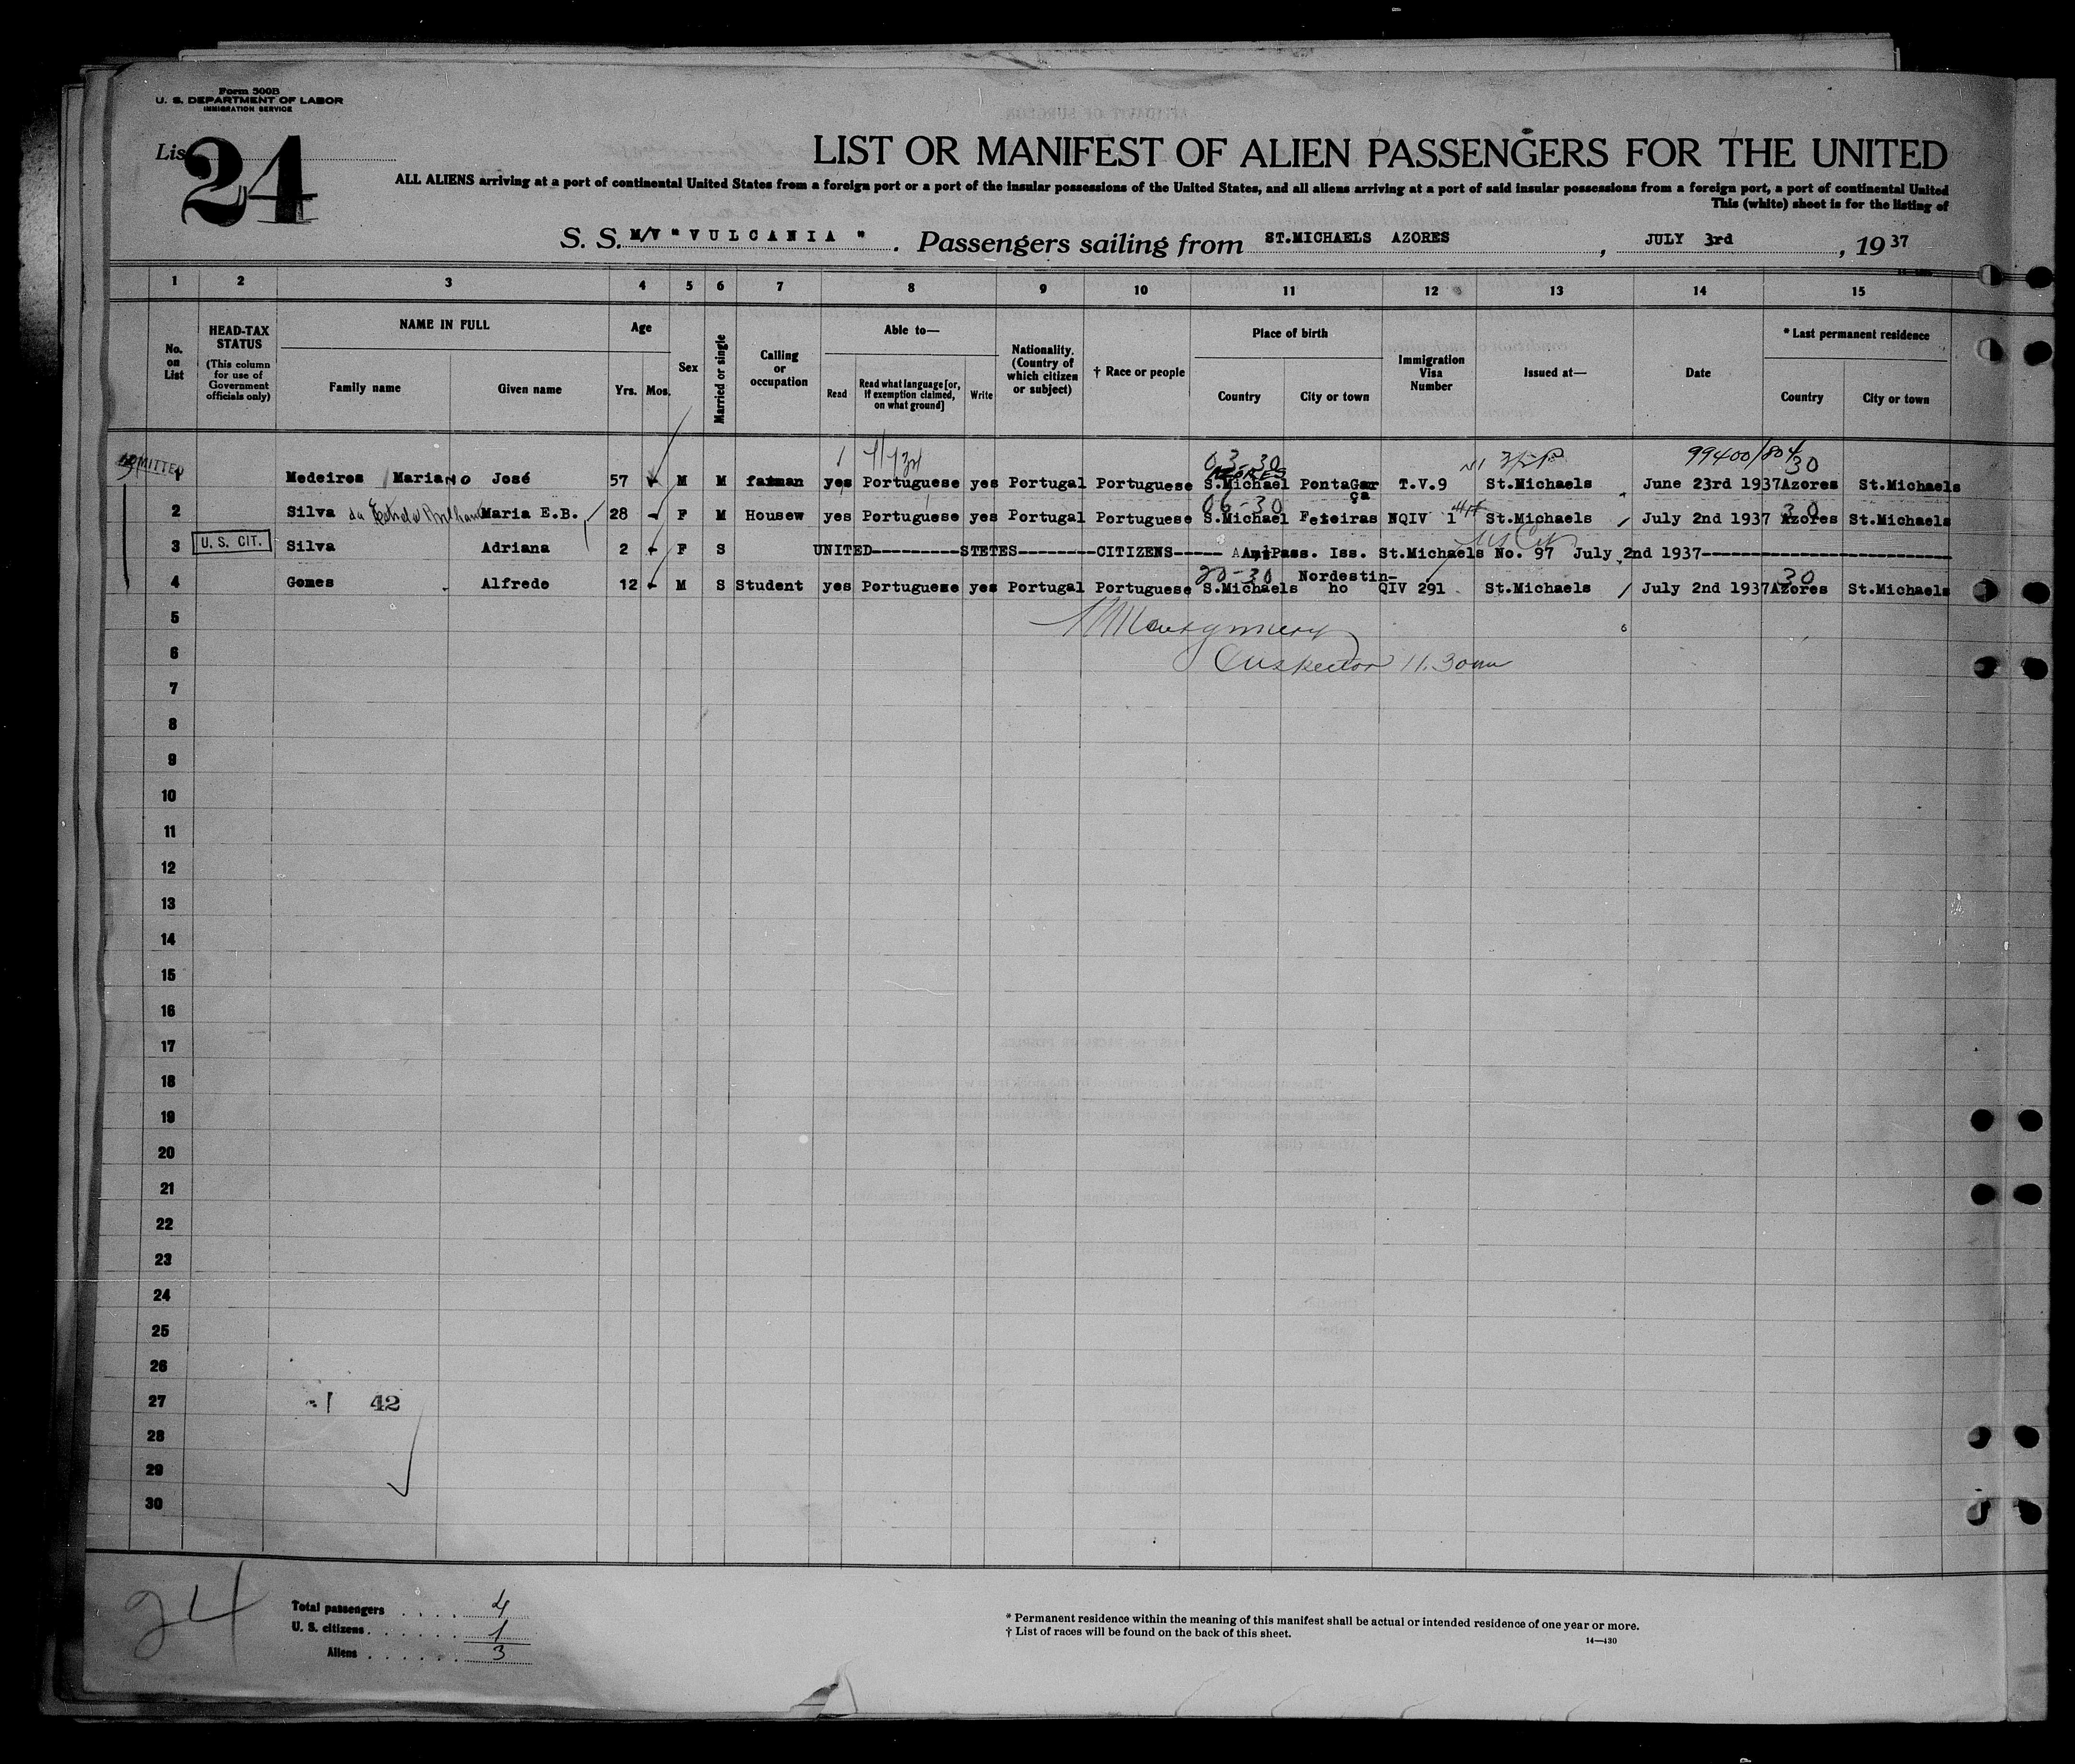 Form 500B
U. S. DEPARTMENT OF LABOR
IMMIGRATION SERVICE
List 24
LIST OR MANIFEST OF ALIEN PASSENGERS FOR THE UNITED
ALL ALIENS arriving at a port of continental United States from a foreign port or a port of the insular possessions of the United States, and all aliens arriving at a port of said insular possessions from a foreign port, a port of continental United
This (white) sheet is for the listing of
S. S. M/V "VULCANIA". Passengers sailing from ST.MICHAELS AZORES, JULY 3rd, 1937
1 2 3 4 5 6 7 8 9 10 11 12 13 14 15
No. on List
HEAD-TAX STATUS (This column for use of Government officials only)
NAME IN FULL
Family name
Given name
Age
Yrs.
Mos.
Sex
Married or single
Calling or occupation
Able to—
Read
Read what language [or, if exemption claimed, on what ground]
Write
Nationality. (Country of which citizen or subject)
† Race or people
Place of birth
Country
City or town
Immigration Visa Number
Issued at—
Date
* Last permanent residence
Country
City or town
99400/804
03-30 30
ADMITTED
AZORES
1 Medeiros Mariano José 57 M M yes Portuguese yes Portugal Portuguese S.Michael PontaGarça T.V.9 St.Michaels June 23rd 1937 Azores St.Michaels
06-30 30
2 Silva da Maria E.B. 28 F M Housew yes Portuguese yes Portugal Portuguese S.Michael Feteiras NQIV 1 St.Michaels July 2nd 1937 Azores St.Michaels
US Cit
3 U. S. CIT. Silva Adriana 2 F S UNITED---------STETES--------CITIZENS----- Pass. Iss. St.Michaels No. 97 July 2nd 1937-----------------------------
20-30 30
4 Gomes Alfredo 12 M S Student yes Portuguese yes Portugal Portuguese S.Michaels Nordestin-ho QIV 291 St.Michaels July 2nd 1937 Azores St.Michaels
5 Montgomery
6 Inspector 11.30am
7
8
9
10
11
12
13
14
15
16
17
18
19
20
21
22
23
24
25
26
27 42
28
29
30
24
Total passengers . . . . 4
U. S. citizens . . . . . . 1
Aliens . . . . . . 3
* Permanent residence within the meaning of this manifest shall be actual or intended residence of one year or more.
† List of races will be found on the back of this sheet.
14—430